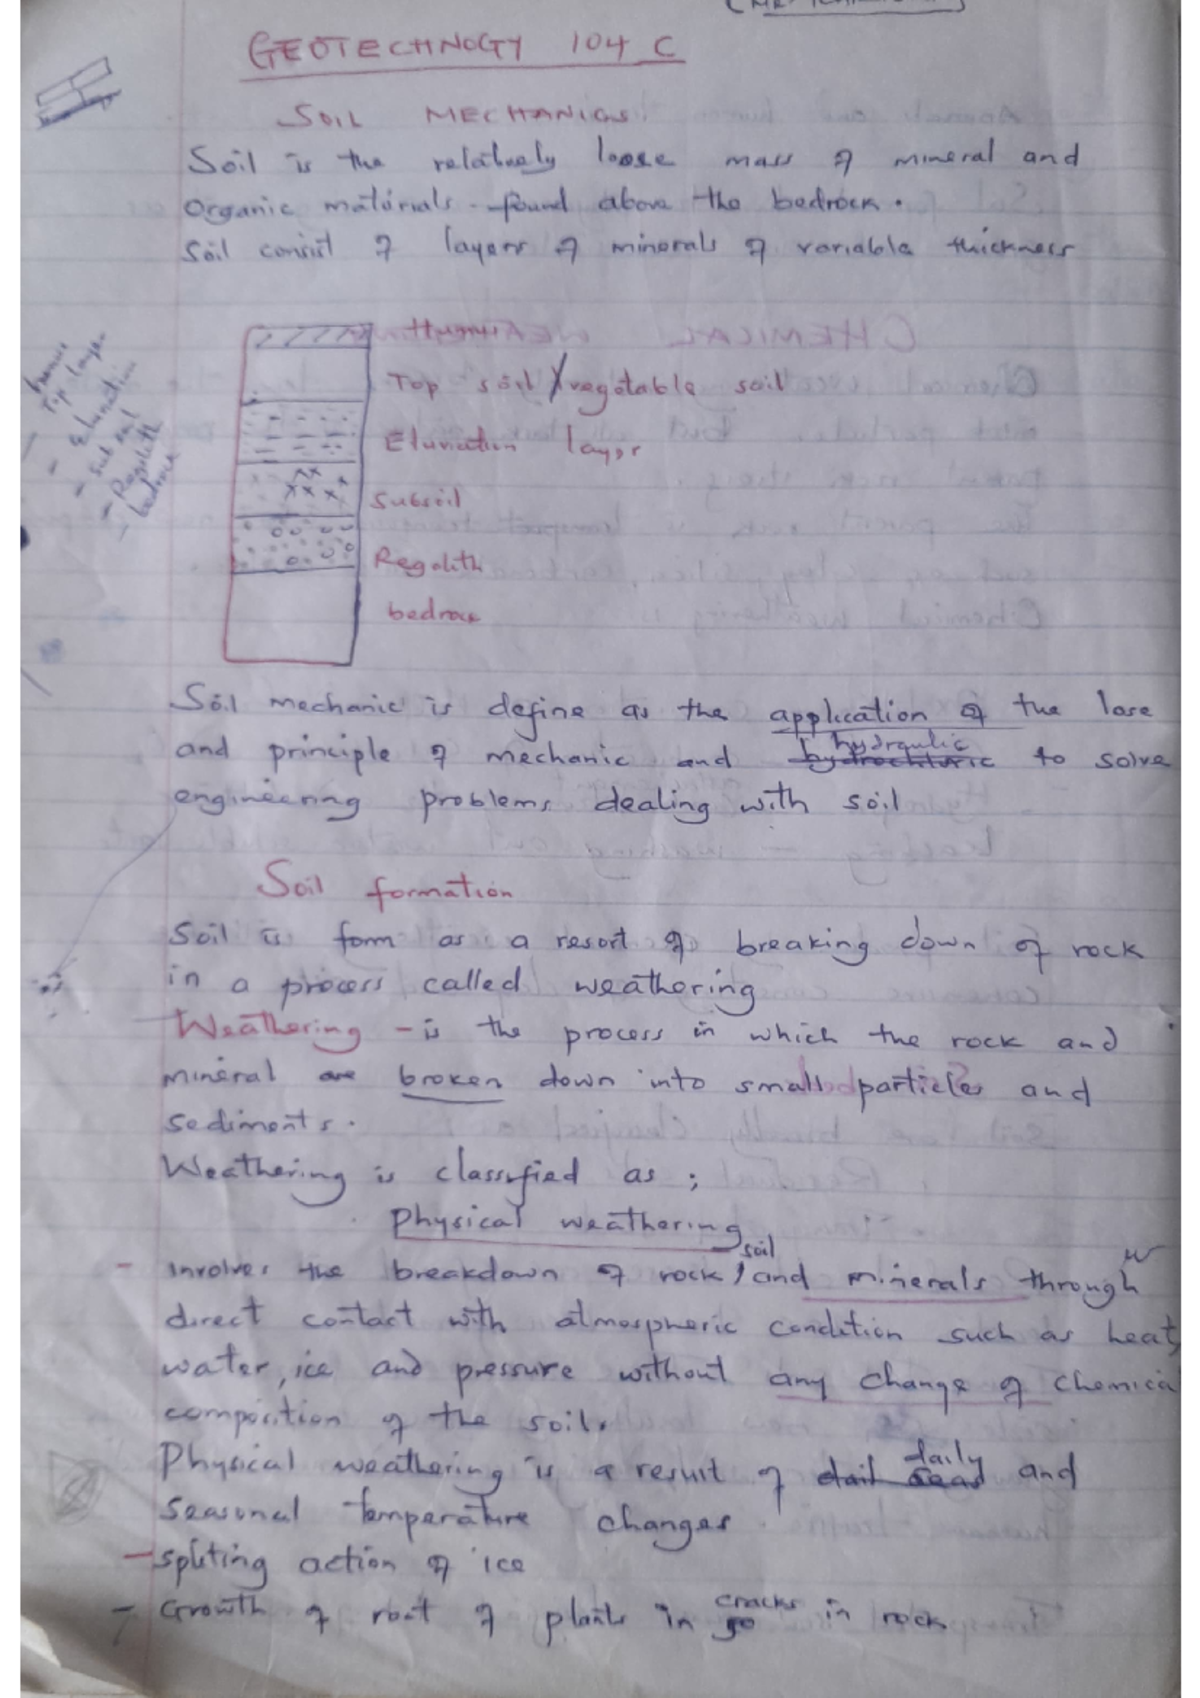 GEOTECHNOGY 104 C
SOIL MECHANICS
Soil is the relatively loose mass of mineral and
Organic materials found above the bedrock.
Soil consist of layers of minerals of variable thickness
Humus
Top soil / vegetable soil
Eluviation layer
Subsoil
Regolith
bedrock
humus
- Top layer
- Eluviation
- Sub soil
- Regolith
- bedrock
Soil mechanic is define as the application of the lase
and principle of mechanic and hydraulic to solve
engineering problems dealing with soil
Soil formation
Soil is form as a resort of breaking down of rock
in a process called weathering
Weathering - is the process in which the rock and
mineral are broken down into small particles and
sediments.
Weathering is classified as ;
Physical weathering
- involves the breakdown of rock / soil and minerals through
direct contact with atmospheric condition such as heat,
water, ice and pressure without any change of chemical
composition of the soil.
Physical weathering is a result of daily and
seasonal temperature changes.
- spliting action of ice
- Growth of root of plants in cracks in rock